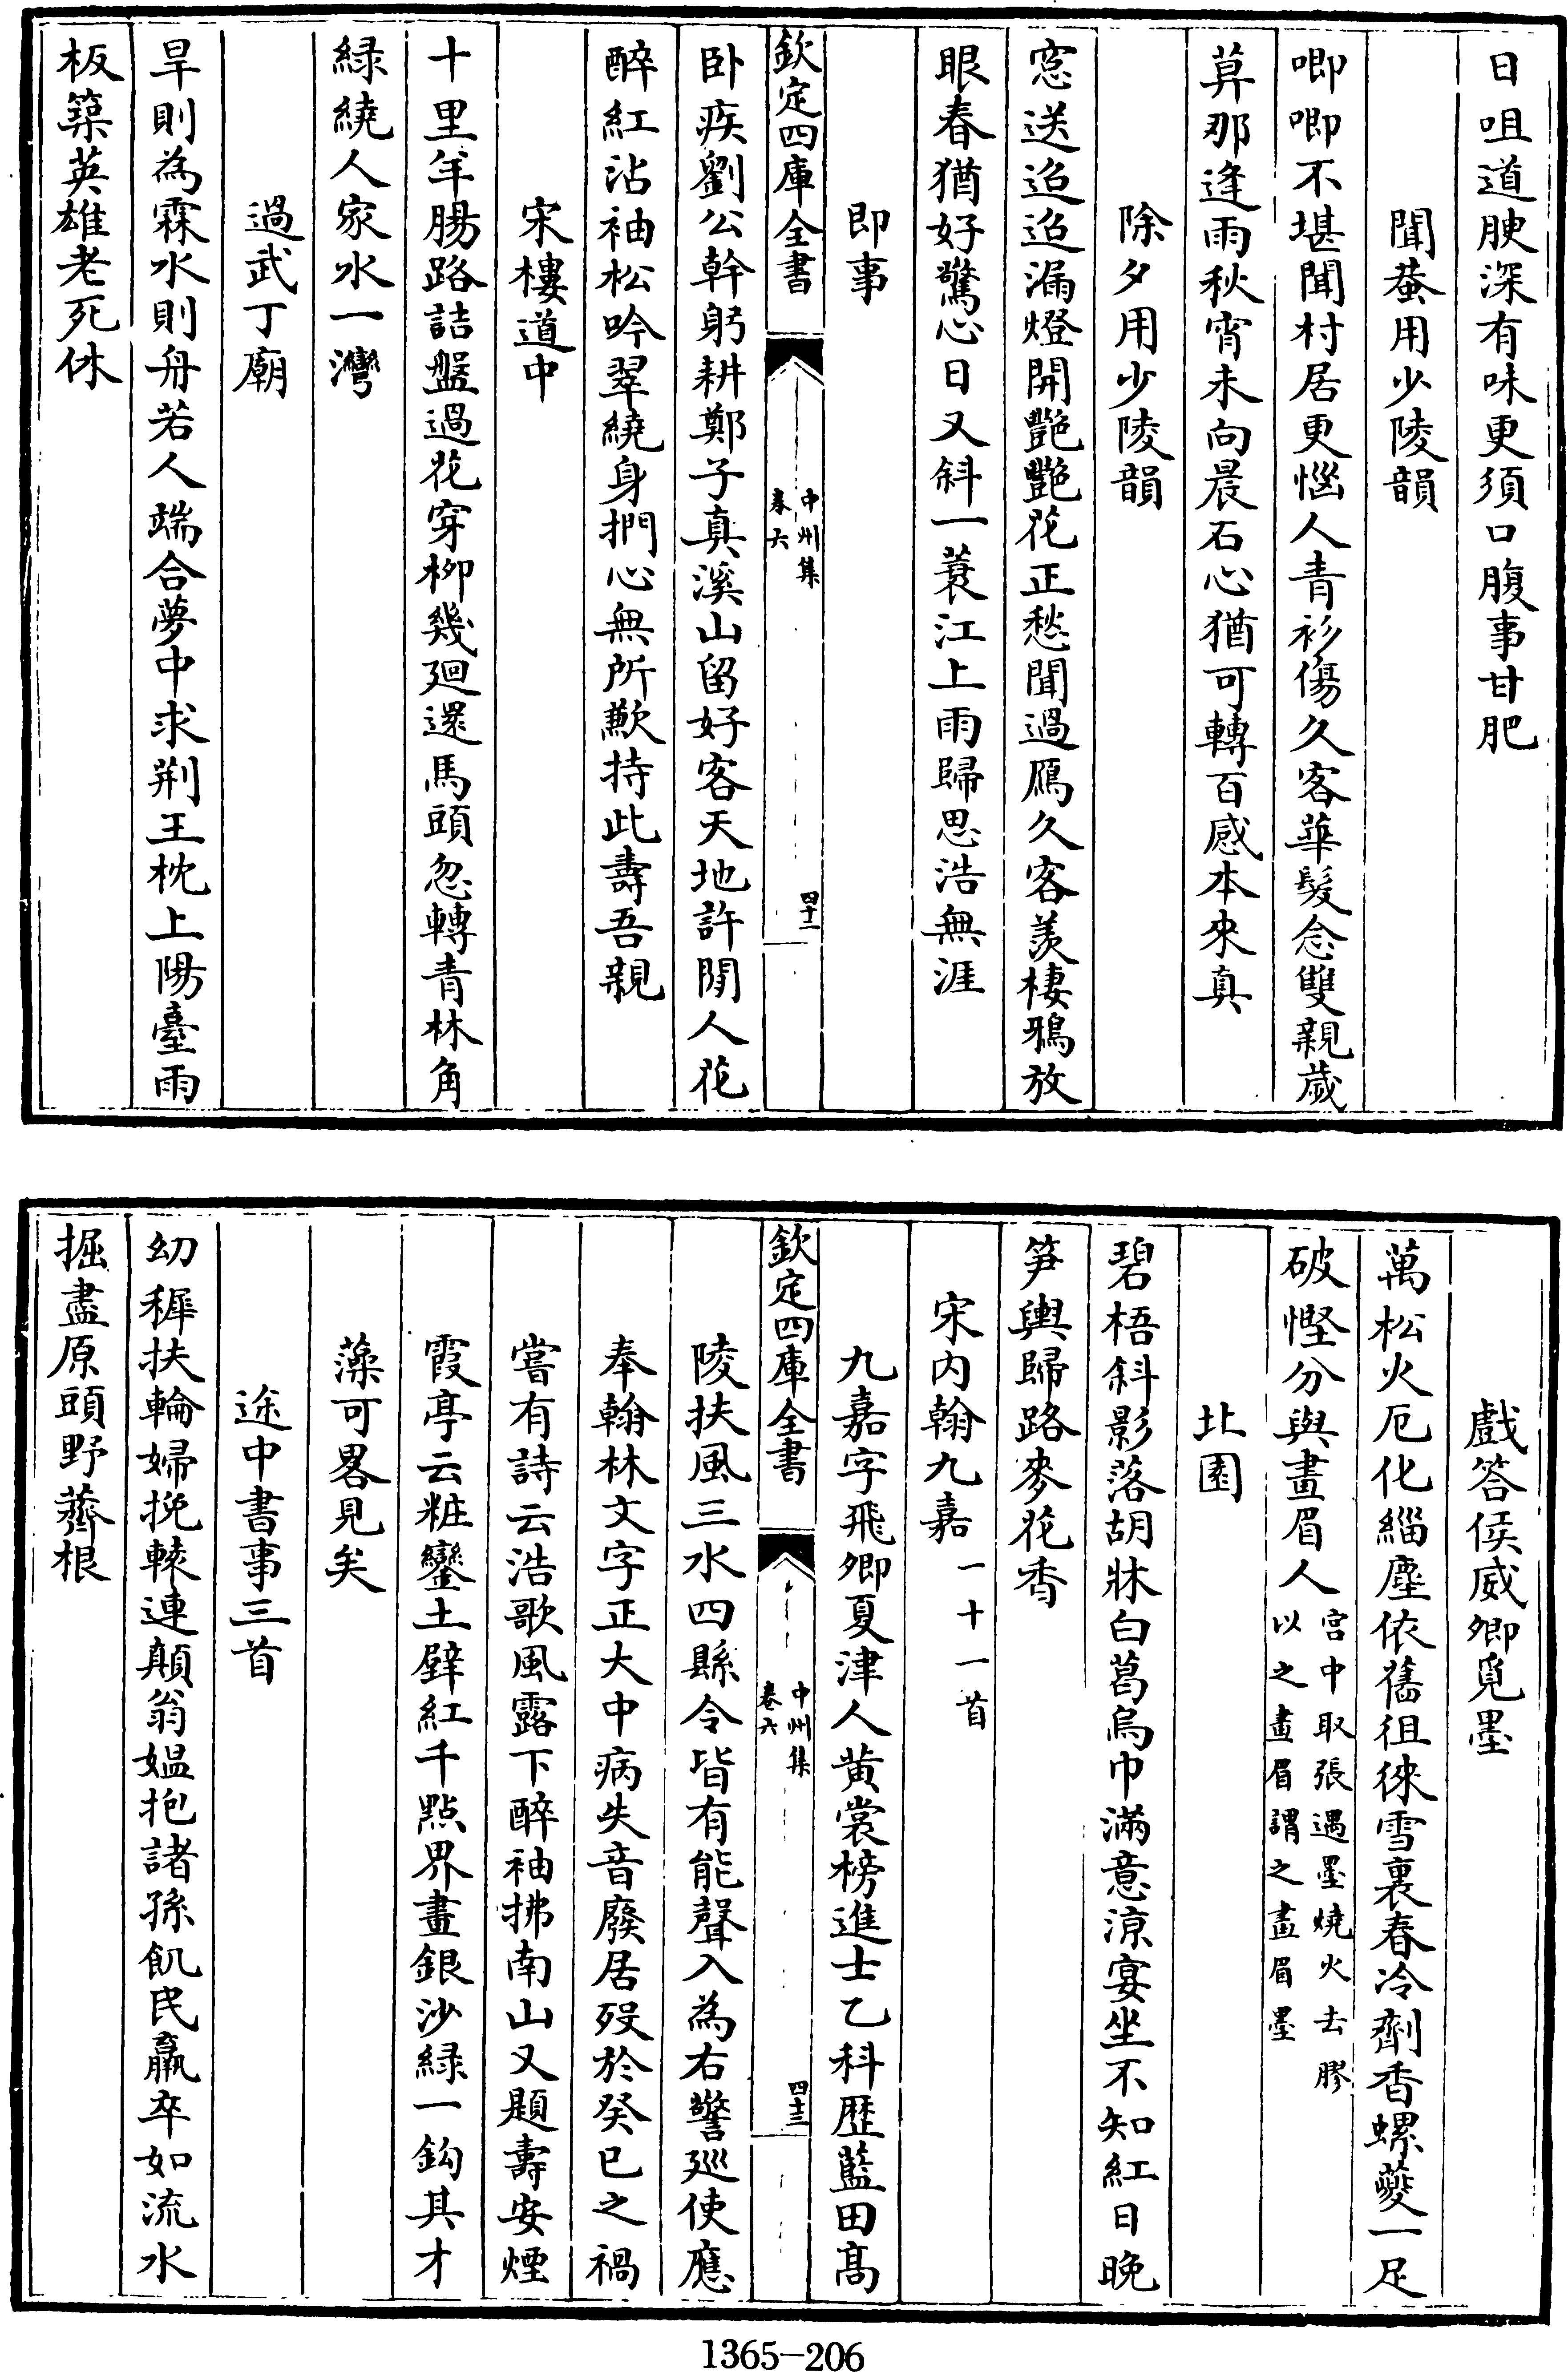 日咀道腴深有味更須口腹事甘肥
聞蛩用少陵韻
唧唧不堪聞村居更惱人青衫傷久客華髮念雙親歲
莫那逢雨秋宵未向晨石心猶可轉百感本來真
除夕用少陵韻
窓送迢迢漏燈開艷艷花正愁聞過鴈久客羡棲鴉放
眼春猶好驚心日又斜一蓑江上雨歸思浩無涯
即事
欽定四庫全書
中州集
卷六
四十二
卧疾劉公幹躬耕鄭子真溪山留好客天地許閒人花
醉紅沾袖松吟翠繞身捫心無所歉持此壽吾親
宋樓道中
十里羊腸路詰盤過花穿柳幾廻還馬頭忽轉青林角
緑繞人家水一灣
過武丁廟
旱則為霖水則舟若人端合夢中求荆王枕上陽臺雨
板築英雄老死休
戲答侯威卿覓墨
萬松火厄化緇塵依舊徂徠雪裏春冷劑香螺夔一足
破慳分與畫眉人
宫中取張遇墨燒火去膠
以之畫眉謂之畫眉墨
北園
碧梧斜影落胡牀白葛烏巾滿意涼宴坐不知紅日晚
笋輿歸路麥花香
宋内翰九嘉
一十一首
九嘉字飛卿夏津人黄裳榜進士乙科歴藍田髙
欽定四庫全書
中州集
卷六
四十三
陵扶風三水四縣令皆有能聲入為右警廵使應
奉翰林文字正大中病失音廢居殁於癸巳之禍
嘗有詩云浩歌風露下醉袖拂南山又題壽安煙
霞亭云粧鑾土壁紅千點界畫銀沙緑一鈎其才
藻可畧見矣
途中書事三首
幼穉扶輪婦挽轅連顛翁媪抱諸孫飢民羸卒如流水
掘盡原頭野薺根
1365-206